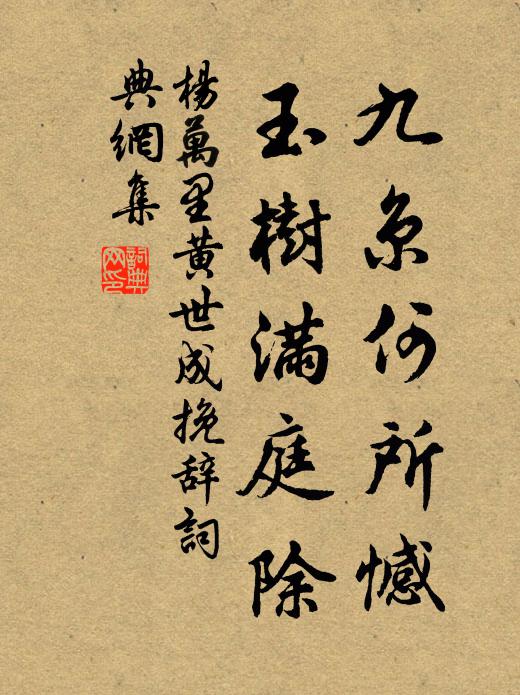 九京何所憾
玉樹滿庭除
楊萬里黄世成挽辞詞
典網集
詞典
网印